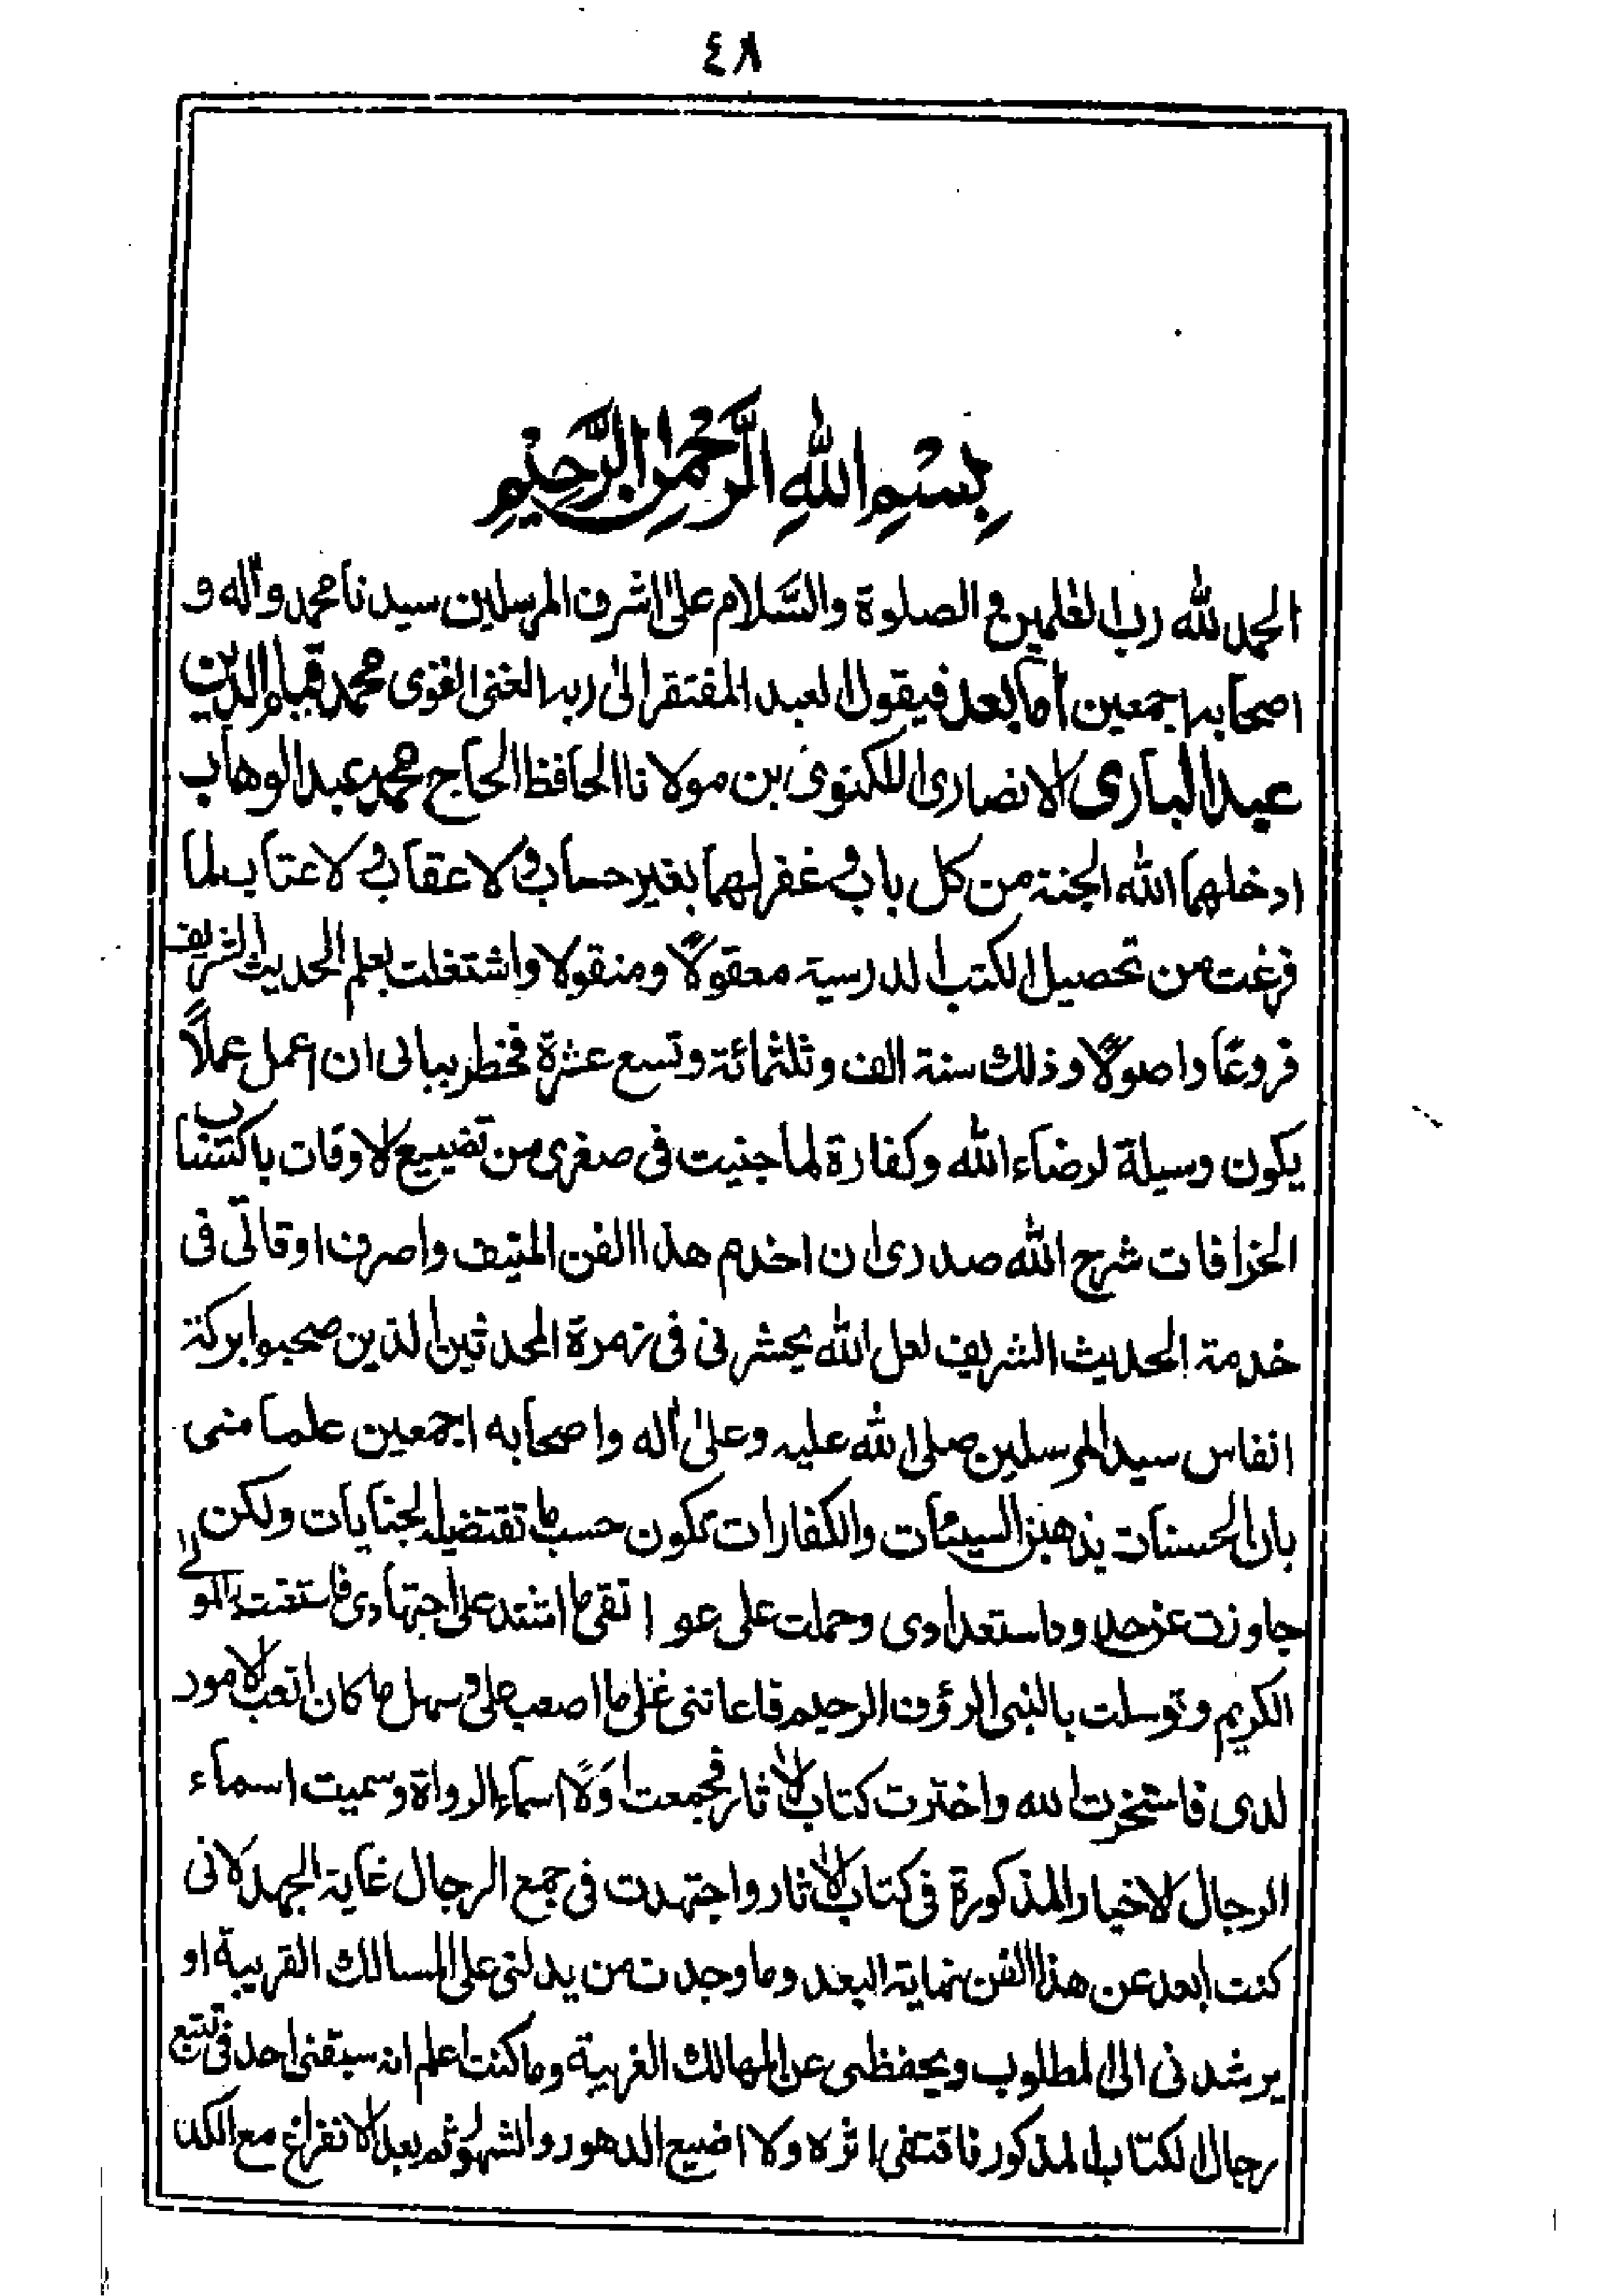 ٤٨
بِسْمِ اللهِ الرَّحْمٰنِ الرَّحِيْمِ
الحمد لله رب العٰلمين و الصلوة والسَّلام علىٰ اشرف المرسلين سيدنا محمد واٰله و
اصحابه اجمعين اما بعد فيقول العبد المفتقر الىٰ ربه الغنى القوى محمد قيام الدين
عبد البارى الانصارى اللكنوى بن مولانا الحافظ الحاج محمد عبد الوهاب
ادخلهما الله الجنة من كل باب و غفر لهما بغير حساب و لا عقاب و لا عتاب لما
فرغت من تحصيل الكتب الدرسية معقولًا ومنقولا واشتغلت بعلم الحديث الشريف
فروعًا واصولًا وذلك سنة الف وثلثمائة وتسع عشرة فخطر ببالى ان اعمل عملًا
يكون وسيلة لرضاء الله وكفارة لما جنيت فى صغرى من تضييع الاوقات باكتساب
الخرافات شرح الله صدرى ان اخدم هذا الفن المنيف واصرف اوقاتى فى
خدمة الحديث الشريف لعل الله يحشرنى فى زمرة المحدثين الذين صحبوا بركة
انفاس سيد المرسلين صلى الله عليه وعلىٰ اٰله واصحابه اجمعين علما منى
بان الحسنات يذهبن السيئات والكفارات تكون حسب ما تقتضيه الجنايات ولكن
جاوزت عن حد وداستعدادى وحملت على عواتقى ما اشتد على اجتهادى فاستغنت بالمولىٰ
الكريم وتوسلت بالنبى الرؤف الرحيم فاعاننى علىٰ ما اصعب على و سهل ما كان اتعب الامور
لدى فاستخرت الله واخترت كتاب الاٰثار فجمعت اوَلًا اسماء الرواة وسميت اسماء
الرجال الاخيار المذكورة فى كتاب الاٰثار واجتهدت فى جمع الرجال غاية الجهد لانى
كنت ابعد عن هذا الفن نهاية البعد وما وجدت من يدلنى على المسالك القريبة او
يرشدنى الى المطلوب ويحفظنى عن المهالك الغريبة وما كنت اعلم انه سبقنى احد فى تتبع
رجال الكتاب المذكور فاقتفى اثره ولا اضيع الدهور والشهور ثم بعد الانفراغ مع الكد